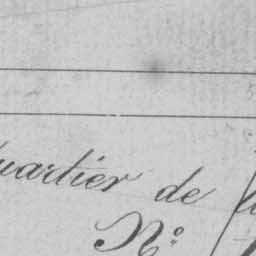 uartier de
N°